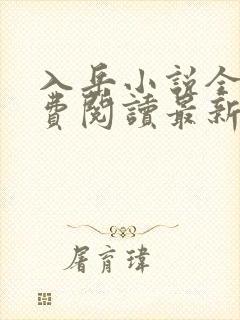 入岳小說全
費閱讀最新
屠育瑋